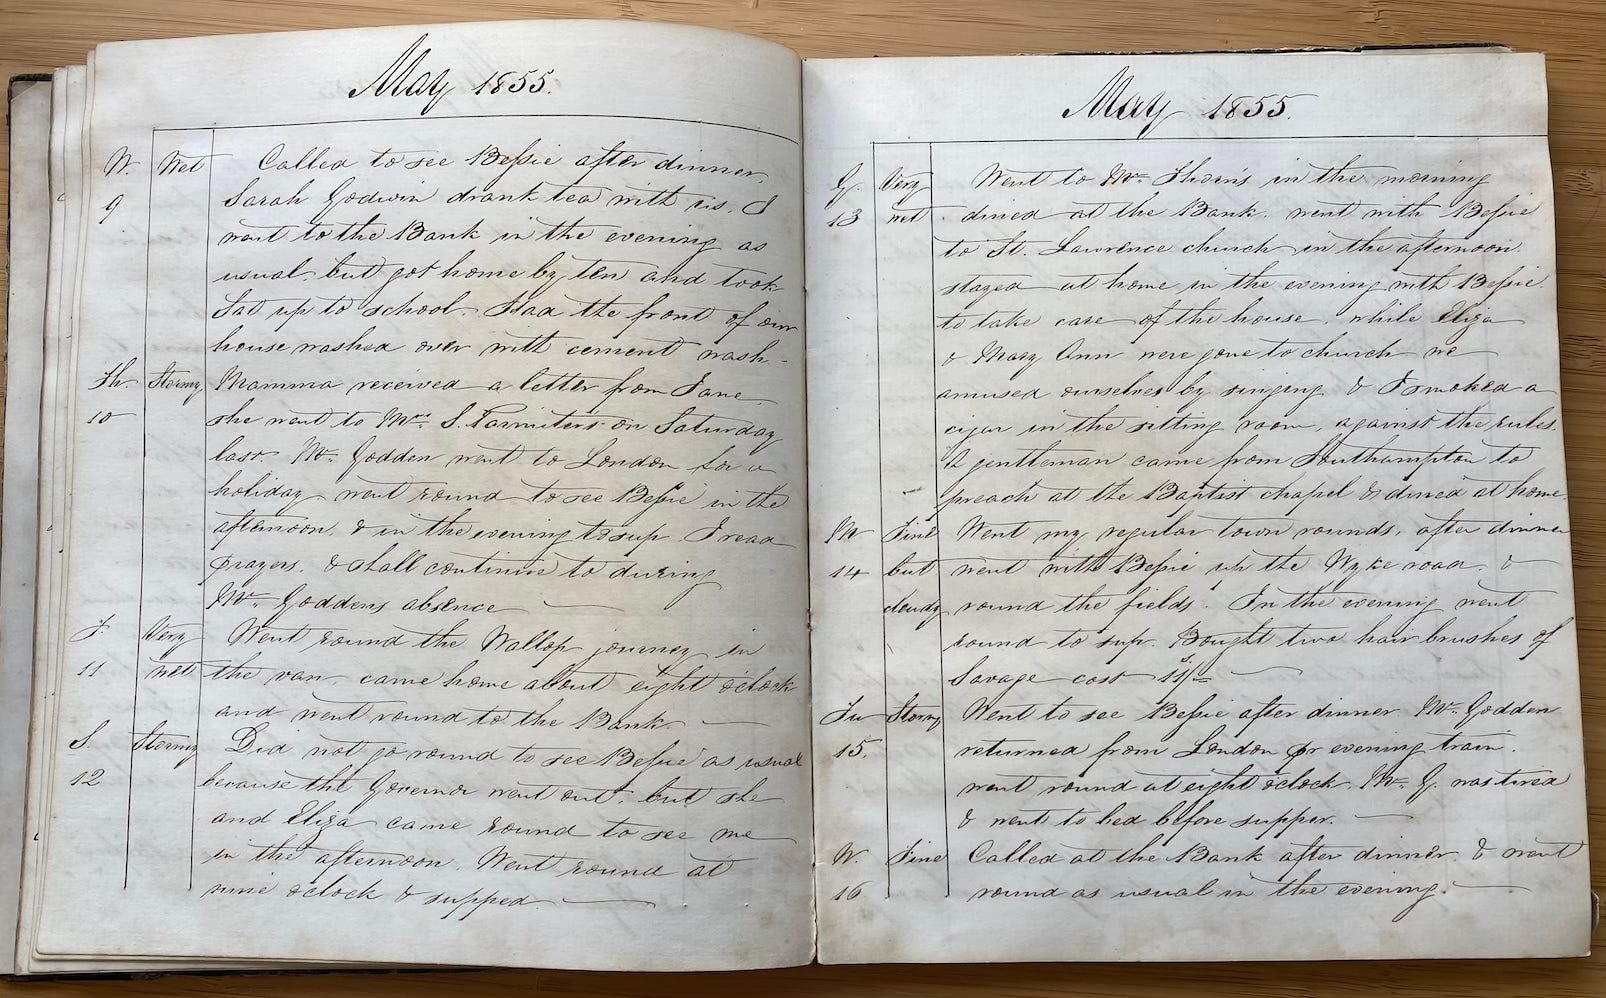 May 1855.
W. Wet Called to see Bessie after dinner.
9 Sarah Godwin drank tea with us. I
went to the Bank in the evening as
usual. but got home by ten and took
Sat up to school. Had the front of our
house washed over with cement wash-
Th. Stormy Mamma received a letter from Jane.
10 she went to Mrs. S. Parmiters on Saturday
last. Mr. Godden went to London for a
holiday went round to see Bessie in the
afternoon. & in the evening to sup. I read
prayers. & shall continue to during
Mr. Goddens absence
F. Very Went round the Wallop journey in
11 wet the van. came home about eight o'clock
and went round to the Bank.
S. Stormy Did not go round to see Bessie as usual
12 because the Governor went out. but she
and Eliza came round to see me
in the afternoon. Went round at
nine o'clock & supped.
May 1855.
Very Went to Mr. Thorn's in the morning
13 wet. dined at the Bank. went with Bessie
to St. Lawrence church in the afternoon.
stayed at home in the evening with Bessie.
to take care of the house. while Eliza
& Mary Ann were gone to church we
amused ourselves by singing & I smoked a
cigar in the sitting room, against the rules.
A gentleman came from Southampton to
preach at the Baptist chapel & dined at home.
M Fine Went my regular town rounds. after dinner
14 but went with Bessie up the Wyke road. &
cloudy round the fields. In the evening went
round to sup. Bought two hair brushes of
Savage cost 11s/-
Tu Stormy Went to see Bessie after dinner. Mr. Godden
15. returned from London pr evening train.
went round at eight o'clock. Mr. G. was tired
& went to bed before supper.
W. Fine Called at the Bank after dinner. & went
16 round as usual in the evening.